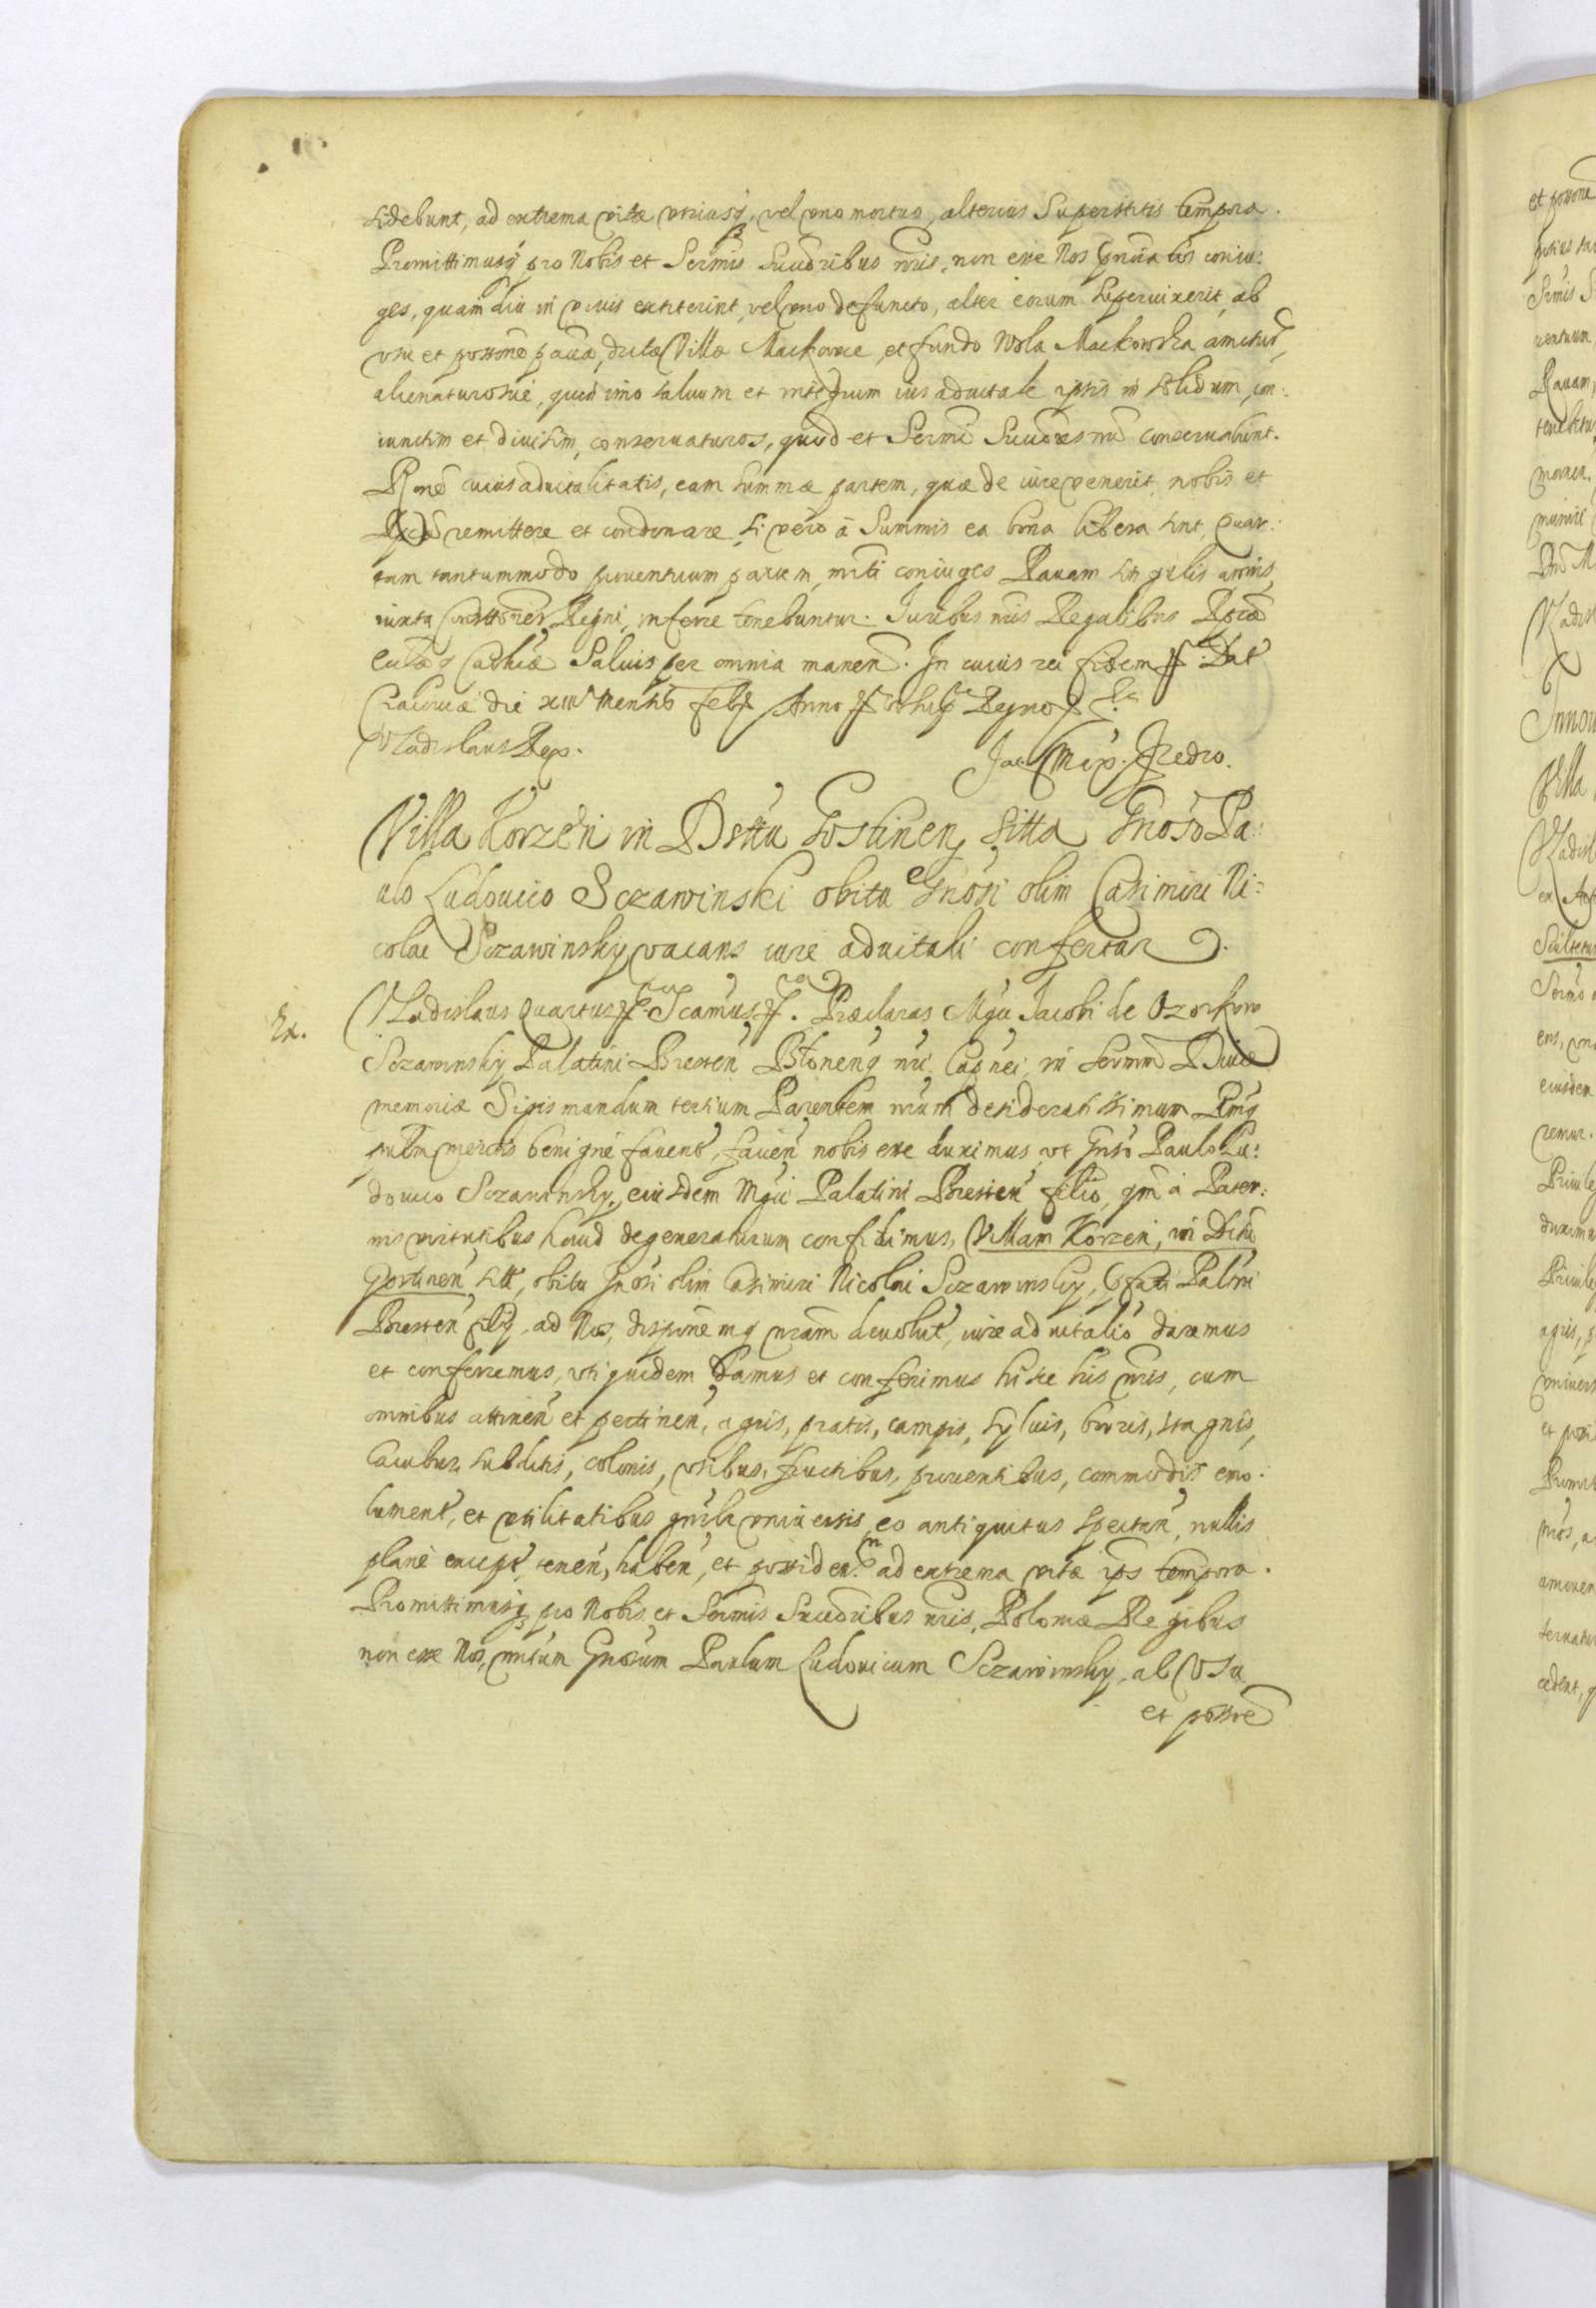 sidebunt, ad extrema vitæ vtriusq, vel vno mortuo, alterius Superstitis tempora.
Promittimusq pro Nobis et Sermis Succribus nris, non esse Nos pntatos coniu:
ges, quam diu in viuis extiterint, vel vno defuncto, alter eorum superuixerit, ab
vsu et possone dictæ Villæ Mackowice, et fundo Wola Mackowska
alienaturosue, quin imo saluum et integrum ius aduitale ipsis in solidum, con:
iunctim et diuisim, conseruaturos, quod et Sermi Succres nri conseruabunt.
Rone cuius aduitalitatis, eam summæ partem, quæ de iure venerit nobis et
remittere et condonare, si vero à Summis ea bona libera sint, quar:
tam tantummodo prouentuum partem, coniuges Rauam singulis annis,
iuxta Constitones Regni, inferre tenebuntur. Iuribus nris Regalibus
Saluis per omnia manen. In cuius rei fidem Dat
Cracouiæ die Mensis Feb Anno Regno
Vladislaus Rex.
Jac Max. Fredro.
Villa Korzeń in Dsttu Gostinen sitta Gnoso Pa:
ulo Ludouico Sczawinski obitu Gnosi olim Casimiri Ni:
colai Sczawinsky vacans iure aduitali confertur
Ex.
Vladislaus Quartus Præclaras Mgci Jacobi de Ozorkow
Sczawinsky Palatini Bresten in Sermum Diuæ
memoriæ Sigismundum tertium Parentem nrum desideratissimum
benigne fauent, nobis esse duximus, vt Gnso Paulo Lu:
douico Sczawinsky, eiusdem Mgci Palatini Bresten filio, qm à Pater:
nis virtutibus haud degeneraturum confidimus, Villam Korzen, in Dsttu
Gostinen sitt, obitu Gnosi olim Casimiri Nicolai Sczawinsky, Palni
Bresten filij, ad Nos, nram deuolut, iure aduitalio daremus
et conferremus, vti quidem damus et conferimus hisce lris nris, cum
omnibus attinen et pertinen, agris, pratis, campis, syluis, borris, stagnis,
lacubus, subditis, colonis, vsibus, fructibus, prouentibus, commodis emo:
lument, et vtilitatibus gnrlr vniuersis, eo antiquitus spectan, nullis
plane except, tenen, haben, et possiden. ad extrema vitæ ips tempora.
Promittimusq pro Nobis et Sermis Succribus nris, Poloniæ Regibus
non esse Nos, Gnosum Paulum Ludouicum Sczawinsky, ab vsu
et possne